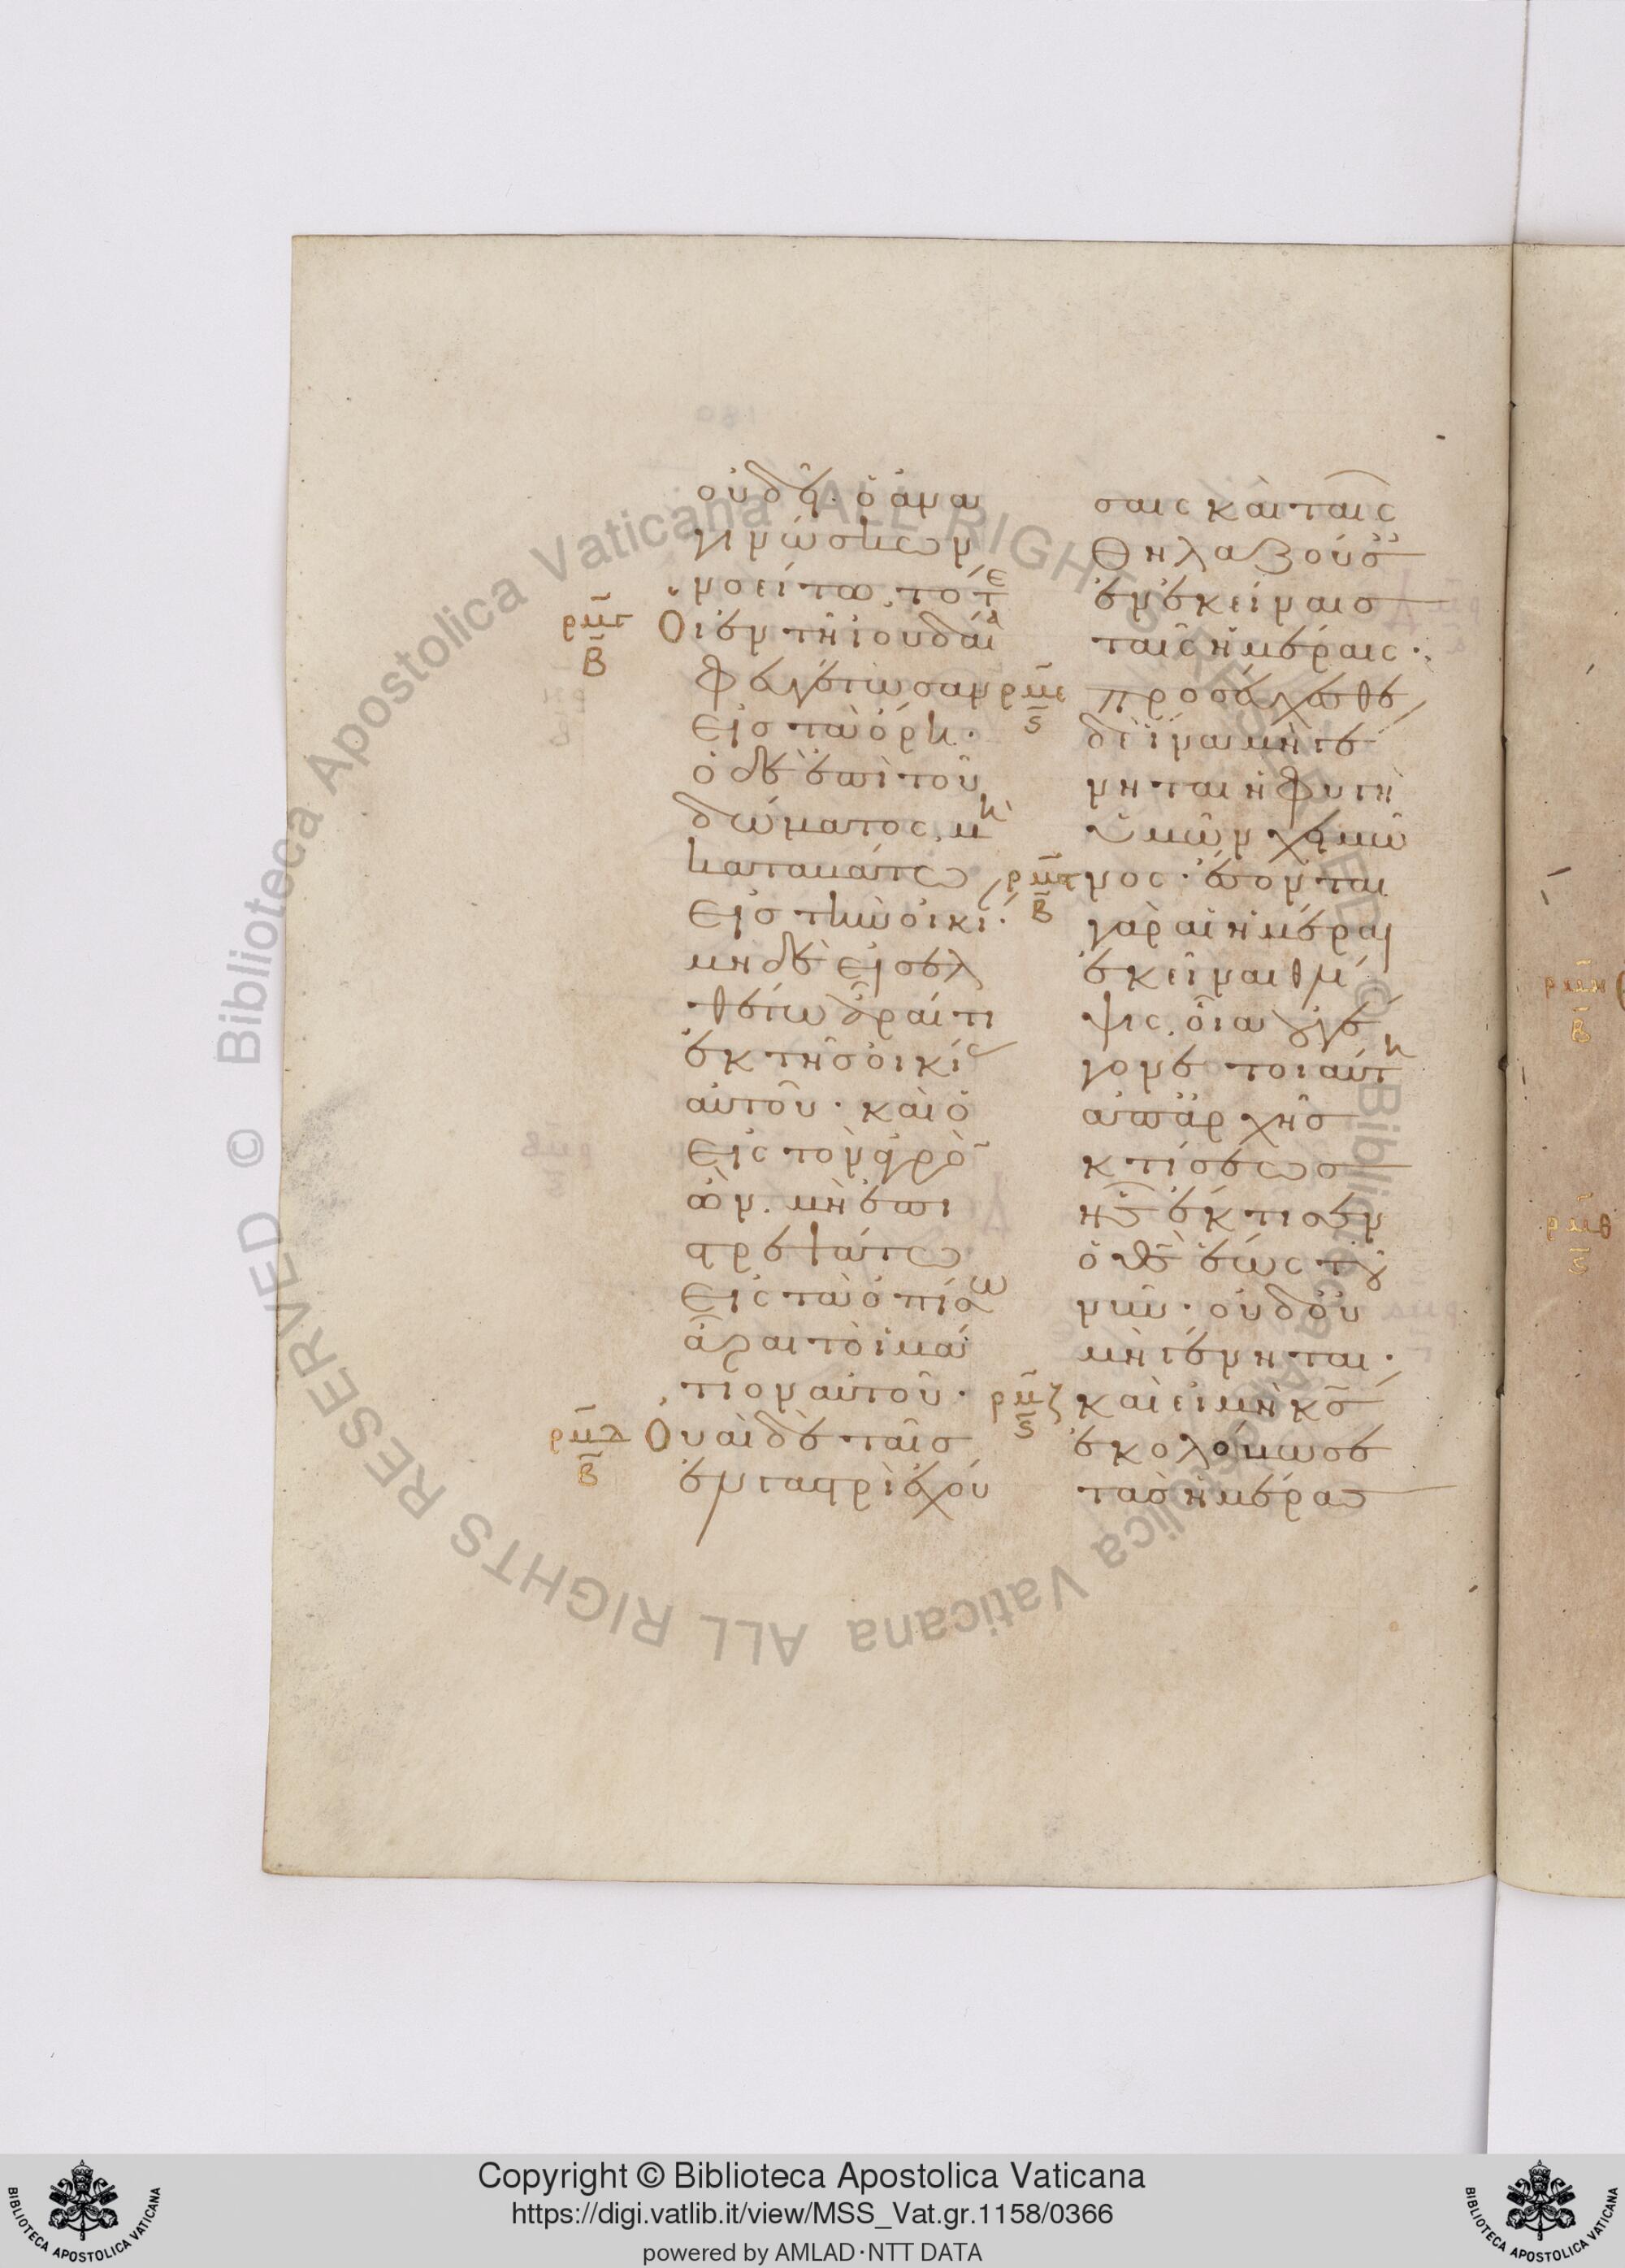 οὐ δεῖ· ὁ ἀνα
γινώσκων
νοείτω· τότε
ρμγ Οἱ ἐν τῆ ἰουδαία
Β
φευγέτωσαν
εἰς τὰ ὄρη·
ὁ δὲ ἐπὶ τοῦ
δώματος, μὴ
καταβάτω
εἰς τὴν οἰκί·
μηδὲ εἰσελ
θέτω ἆραί τι
ἐκ τῆς οἰκίας
αὐτοῦ· καὶ ὁ
εἰς τὸν ἀγρὸ
ὢν. μὴ ἐπι
στρεψάτω
εἰς τὰ ὀπίσω
ἆραι τὸ ἱμά
τιον αὐτοῦ·
ρμδ Οὐαὶ δὲ ταῖς
Β
ἐν γαστρὶ ἐχού
σαις καὶ ταῖς
θηλαζούσαις
ἐν ἐκείναις
ταῖς ἡμέραις·
ρμε προσεύχεσθε
ς
δὲ ἵνα μὴ γέ
νηται ἡ φυγὴ
ὑμῶν χειμῶ
ρμς νος· ἔσονται
Β
γὰρ αἱ ἡμέραι
ἐκεῖναι θλί
ψις. οἵα οὐ γέ
γονε τοιαύτη
ἀπ' ἀρχῆς
κτίσεως
ἧς ἔκτισεν
ὁ θς ἕως τοῦ
νῦν· οὐδ' οὐ
μὴ γένηται·
ρμζ καὶ εἰ μὴ κς
ς
ἐκολόβωσε
τὰς ἡμέρας
Copyright © Biblioteca Apostolica Vaticana
https://digi.vatlib.it/view/MSS_Vat.gr.1158/0366
powered by AMLAD·NTT DATA